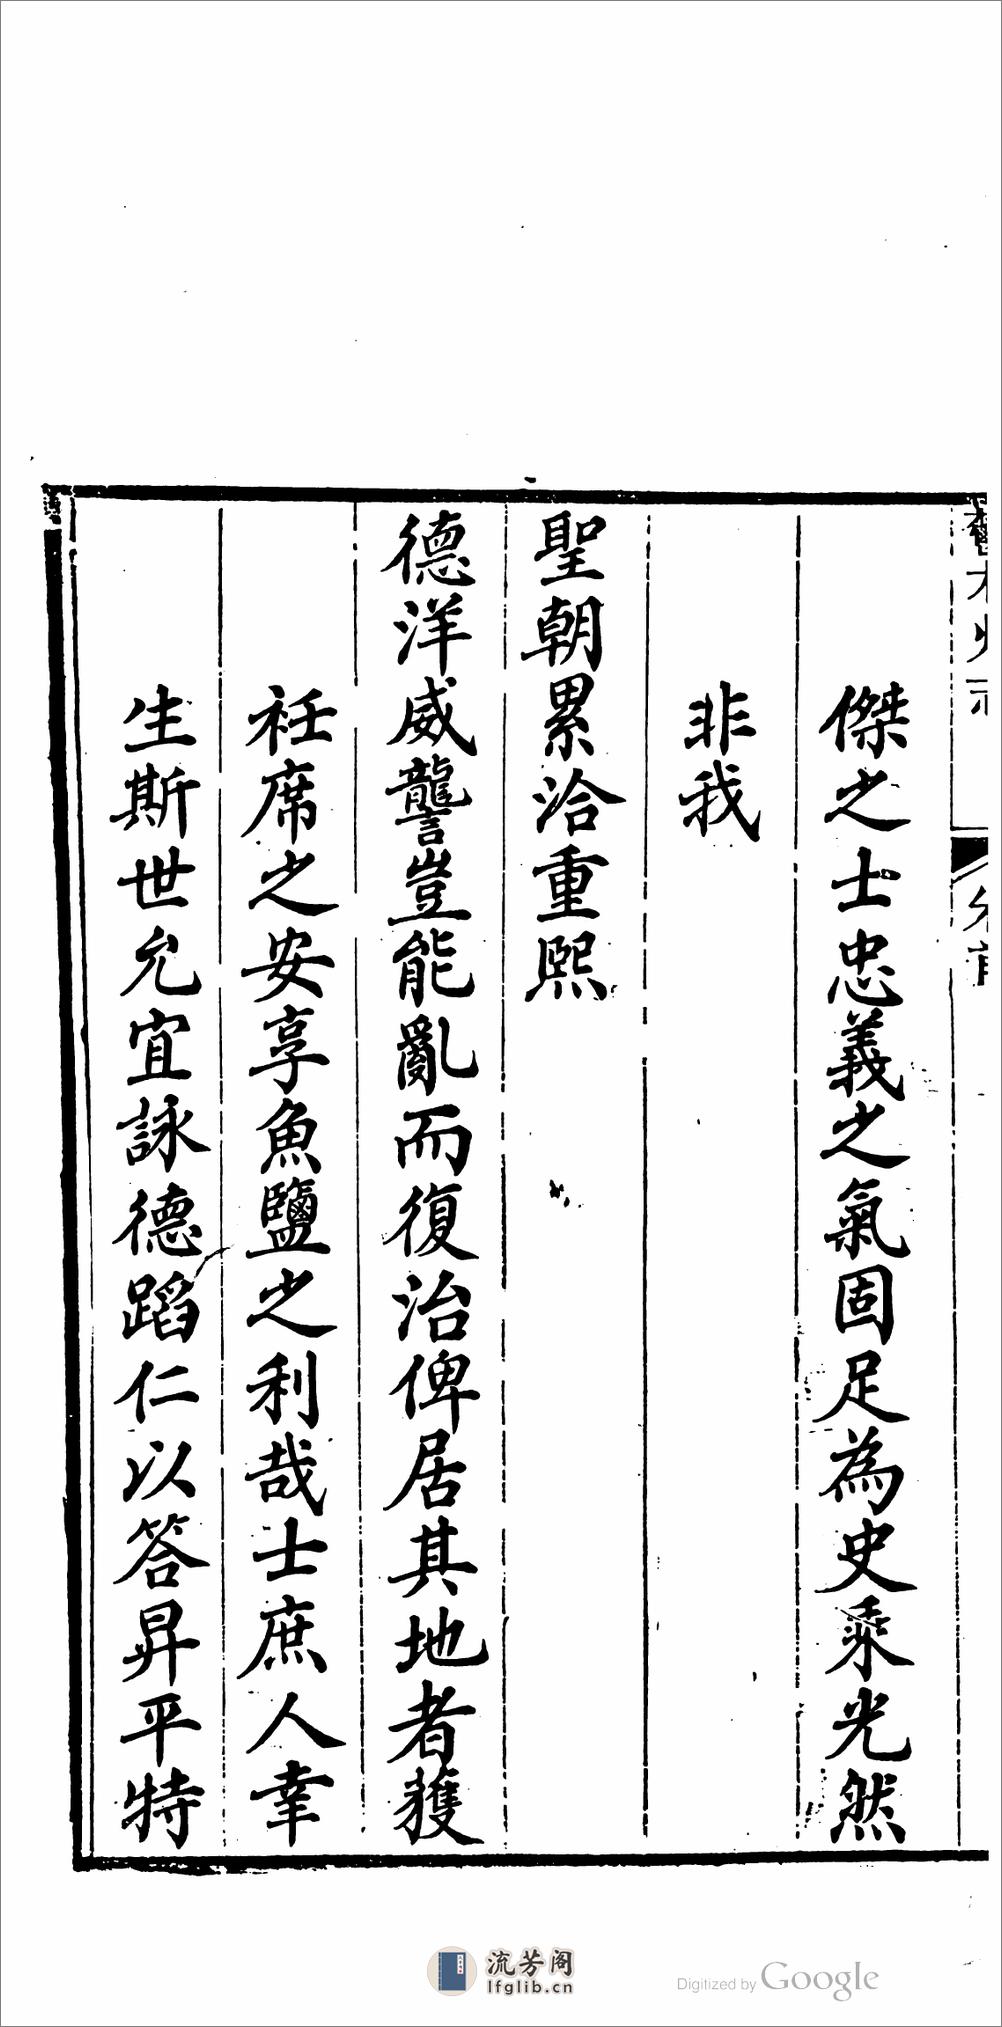 傑之士忠義之氣固足為史乘光然
非我
聖朝累洽重熙
德洋威讋豈能亂而復治俾居其地者獲
袵席之安享魚鹽之利哉士庶人幸
生斯世允宜詠德蹈仁以答昇平特
流芳阁
lfglib.cn
Digitized by Google